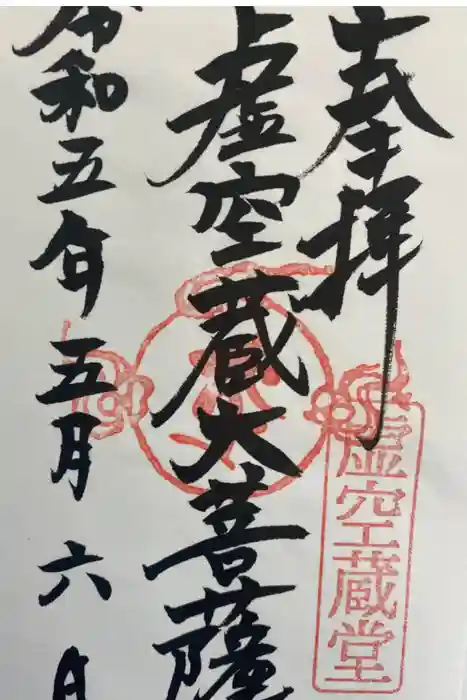 奉拝
虚空蔵大菩薩
令和五年五月六日
虚空蔵堂